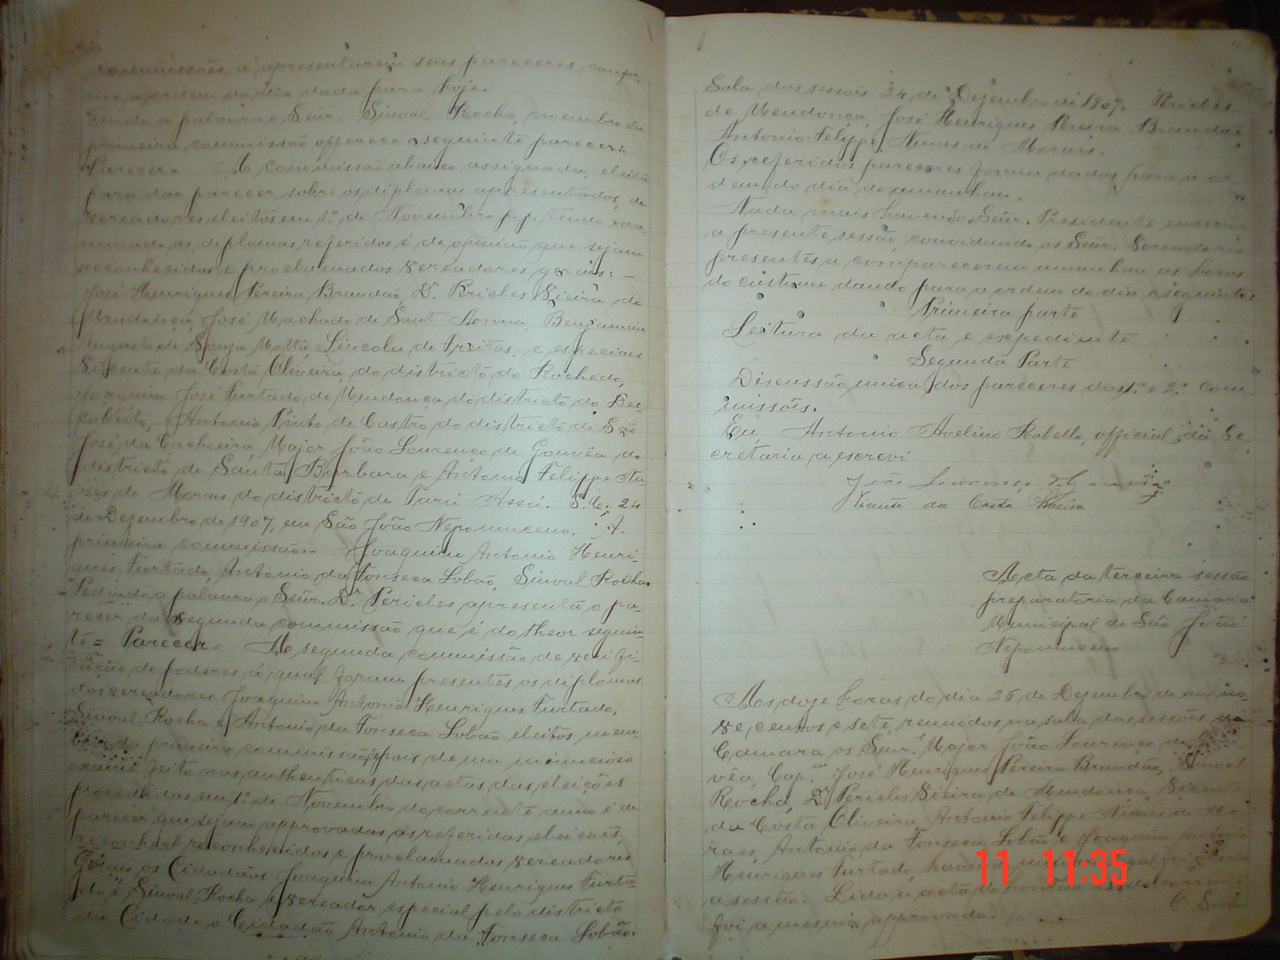 commissões, á apresentarem seus pareceres confor-
me a ordem do dia dada para hoje.
Tendo a palavra o Señr. Sinval Rocha, membro da
primeira commissão offerece o seguinte parecer:
Parecer = A commissão abaixo assignada, eleita
para dar parecer sobre os diplomas apresentados, de
vereadores eleitos em 1º de Novembro p.p. tendo exa-
minado os diplomas referidos é de opinião que sejam
reconhecidos e proclamados vereadores geraes: -
José Henriques Pereira Brandão, Dr. Pericles Vieira de
Mendonça, José Machado de Sant'Anna, Benjamim
Augusto de Souza Motta, Lincoln de Freitas, e especiaes
Vicente da Costa Oliveira, do districto do Rochedo,
Joaquim José Furtado de Mendonça do districto do Des-
coberto, Antonio Pinto de Castro do districto de São
José da Cachoeira, Major João Lourenço de Gouvêa do
districto de Santa Barbara e Antonio Felippe Nu-
nes de Moraes do districto de Tarú Assú. S.C. 24
de Dezembro de 1907, em São João Nepomuceno. A
primeira commissão. - Joaquim Antonio Henri-
ques Furtado, Antonio da Fonseca Lobão, Sinval Rocha.
Pedindo a palavra o Señr. Dr. Pericles apresenta o pa-
recer da segunda commissão que é do theor seguin-
te = Parecer = A segunda commissão de verifi-
cação de poderes á qual foram presentes os diplomas
dos vereadores Joaquim Antonio Henriques Furtado,
Sinval Rocha e Antonio da Fonseca Lobão eleitos mem-
bros da primeira commissão, depois de um minucioso
exame feito nas authenticas das actas das eleições
procedidas em 1º de Novembro do corrente anno é de
parecer que sejam approvadas as referidas eleições,
reconhecidos e proclamados vereadores
Geraes os Cidadãos Joaquim Antonio Henriques Furta-
do e Sinval Rocha e vereador especial pelo districto
da Cidade o Cidadão Antonio da Fonseca Lobão.
Sala das sessões 24 de Dezembro de 1907. Pericles
de Mendonça, José Henriques Pereira Brandão,
Antonio Felippe Nunes de Moraes.
Os referidos pareceres foram dados para a or-
dem do dia de amanham.
Nada mais havendo o Señr. Presidente encerra
a presente sessão convidando os Señr. Vereadores
presentes a comparecerem amanham as horas
do custume dando para a ordem do dia o seguinte:
Primeira parte
Leitura da acta e expediente
Segunda Parte
Discussão unica dos pareceres das 1ª e 2ª com
missões.
Eu, Antonio Avelino Rabello, official da Se
cretaria a escrevi
João Lourenço de Gouvêa
Vicente da Costa Oliveira
Acta da terceira sessão
preparatoria da Camara
Municipal de São João
Nepomuceno
As doze horas do dia 26 de Dezembro de mil no-
ve centos e sete, reunidos na salla das sessões da
Camara os Senr.s Major João Lourenço de Gou-
vêa, Cap.m José Henriques Pereira Brandão, Sinval
Rocha, Dr. Pericles Vieira de Mendonça, Vicente
da Costa Oliveira, Antonio Felippe Nunes de Mo-
raes, Antonio da Fonseca Lobão e Joaquim Antonio
Henriques Furtado, havendo numero legal foi aberta
a sessão. Lida a acta de
foi a mesma approvada. O Senr
11 11:35